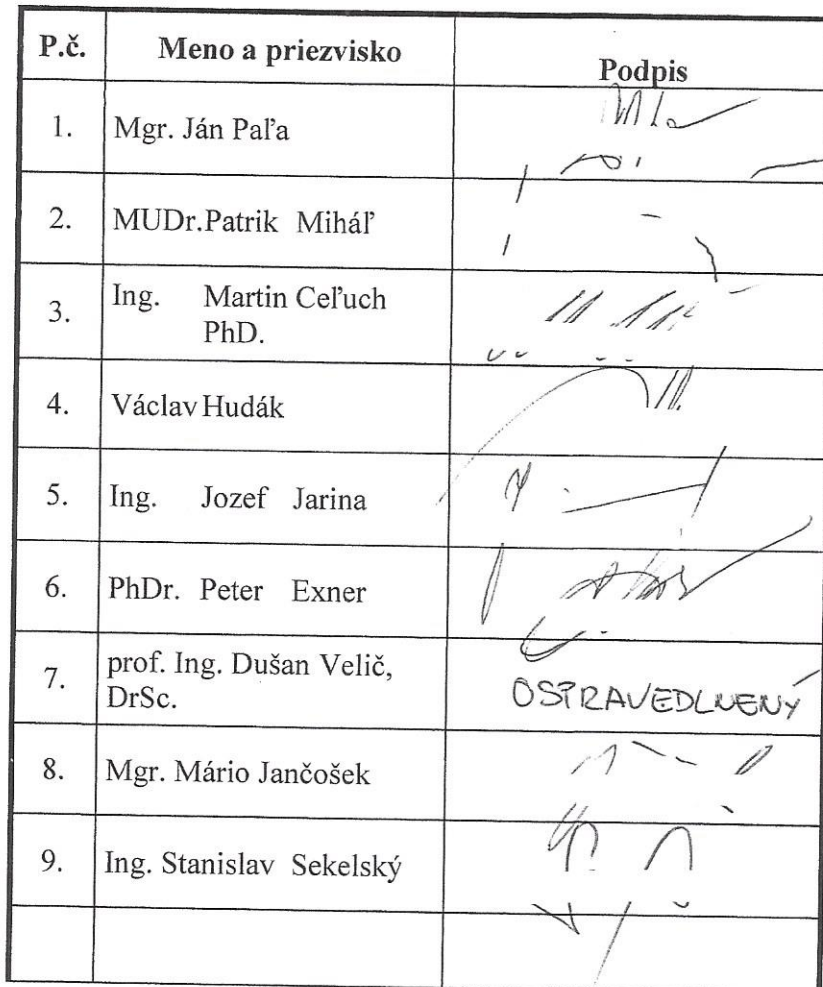 P.č. Meno a priezvisko Podpis
1. Mgr. Ján Paľa
2. MUDr.Patrik Miháľ
3. Ing. Martin Ceľuch
PhD.
4. Václav Hudák
5. Ing. Jozef Jarina
6. PhDr. Peter Exner
7. prof. Ing. Dušan Velič,
DrSc. OSPRAVEDLNENÝ
8. Mgr. Mário Jančošek
9. Ing. Stanislav Sekelský